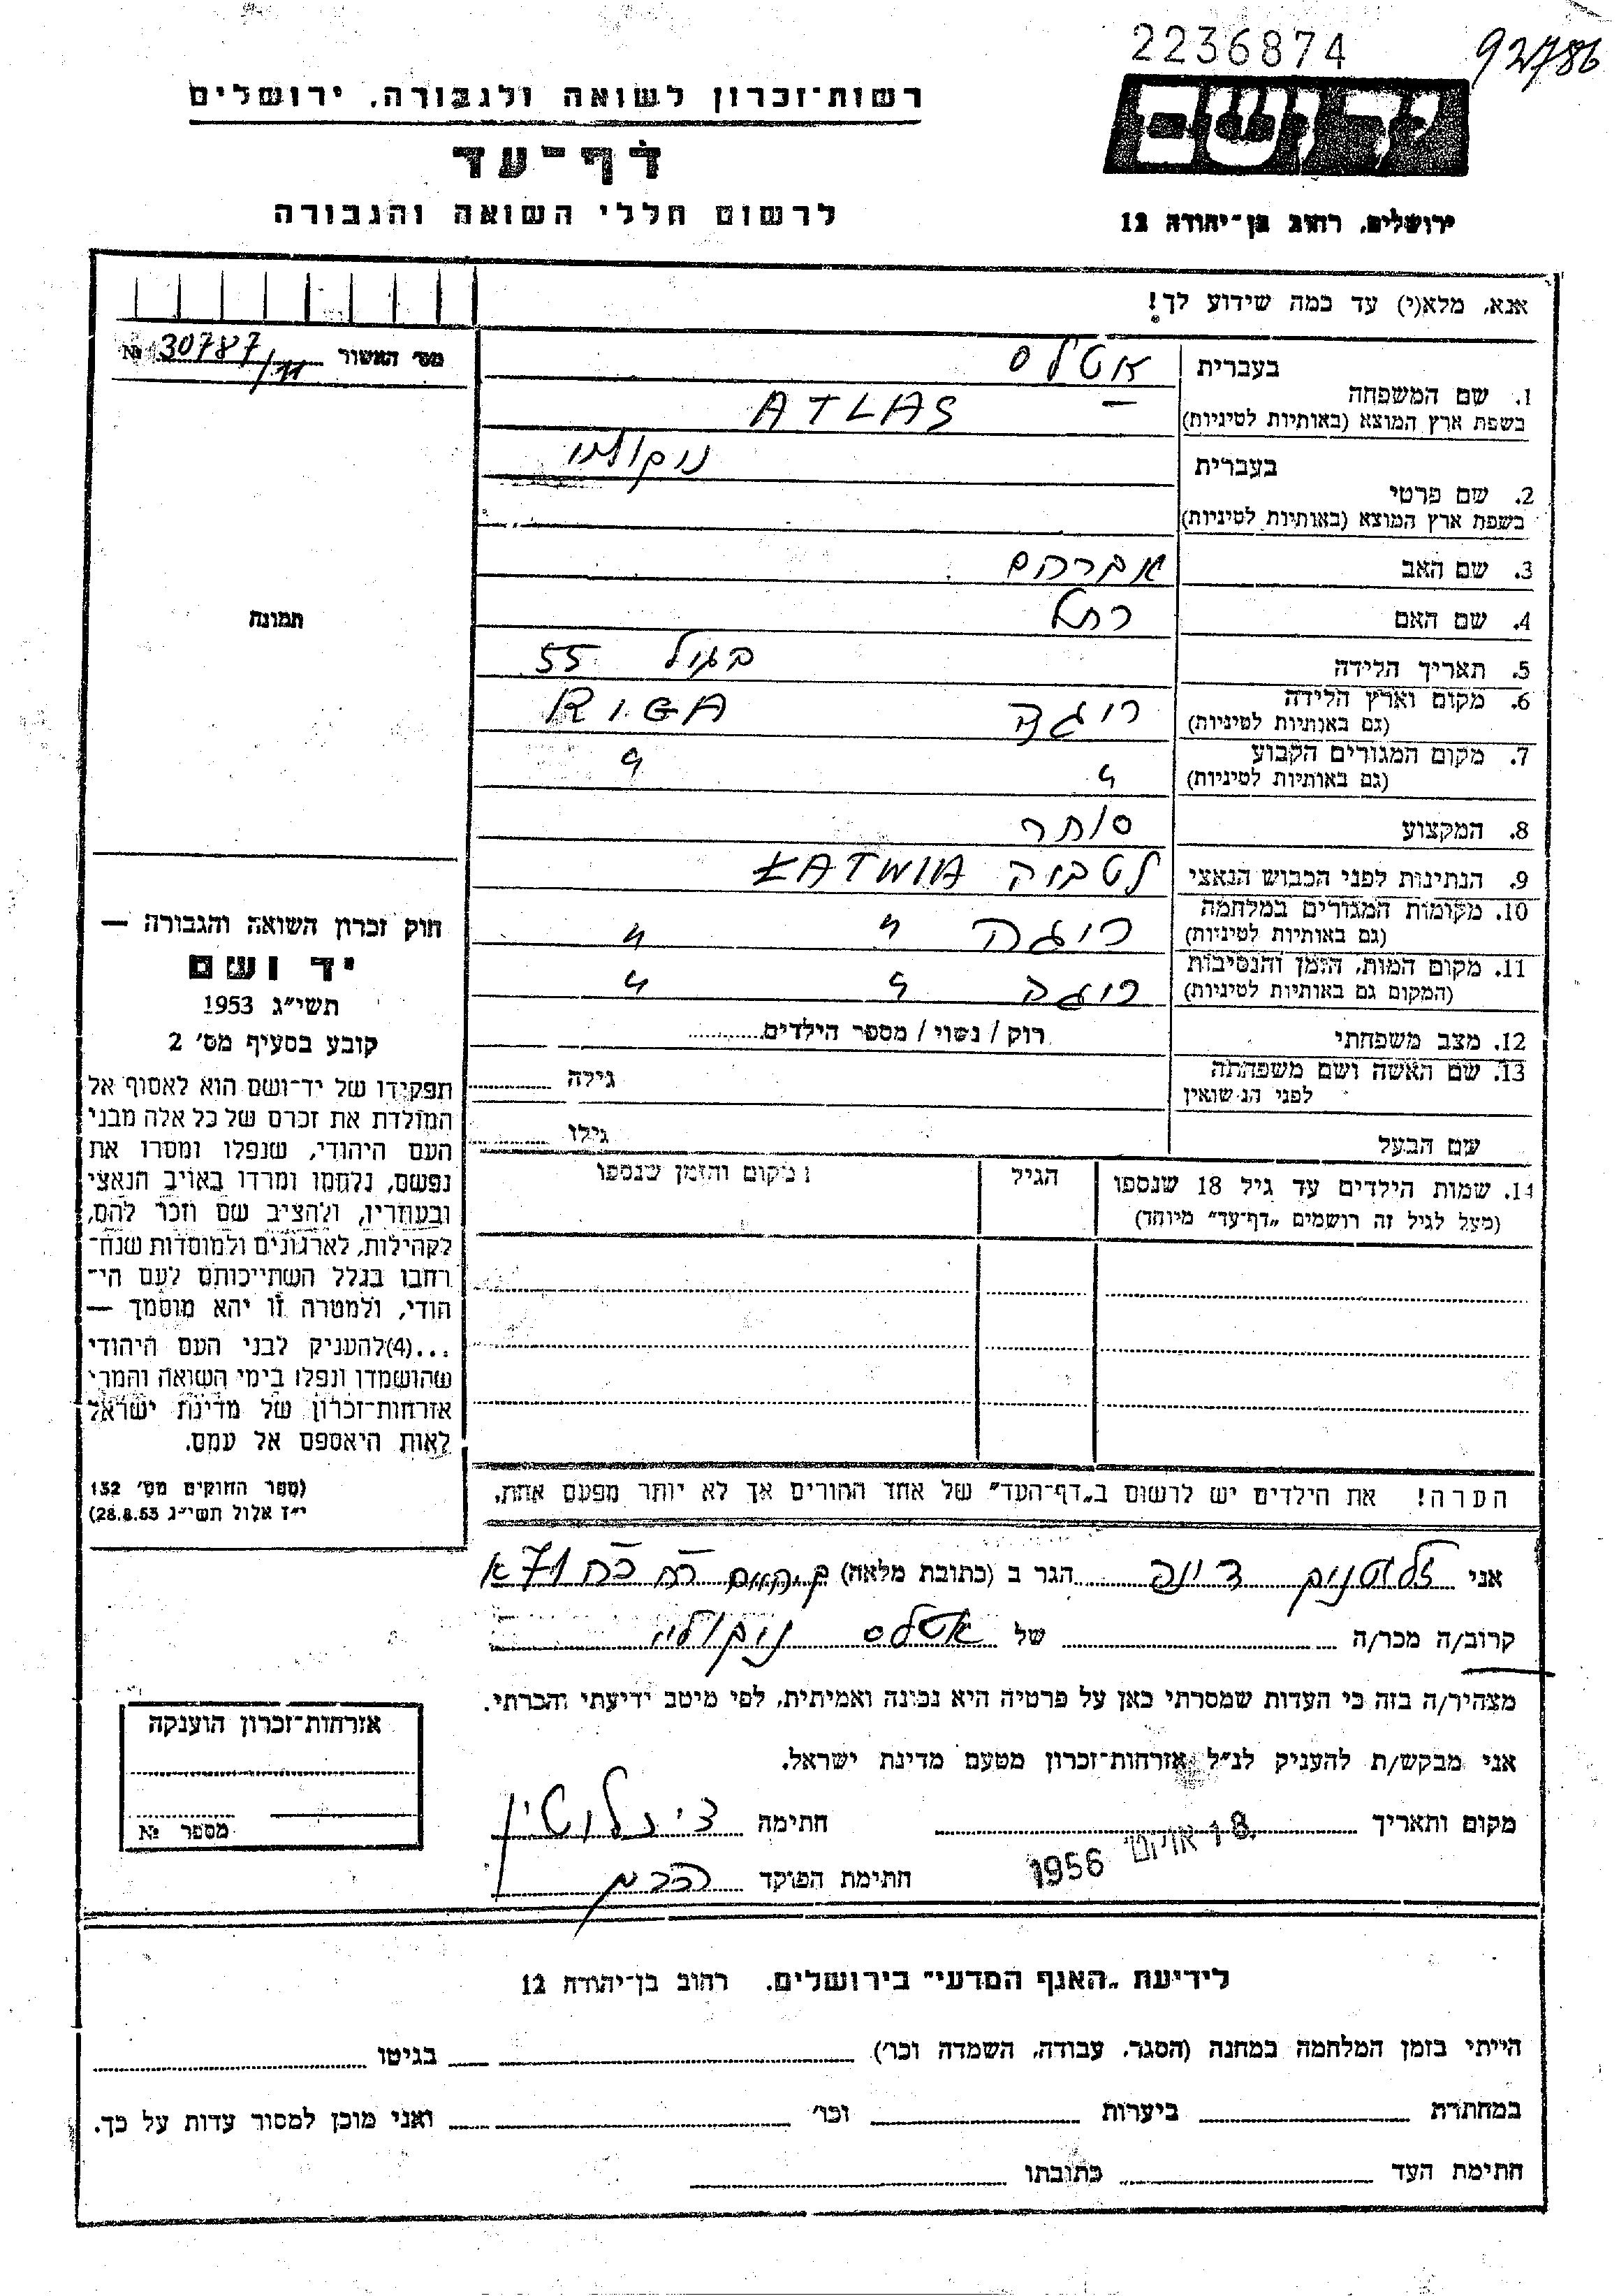 2236874
92786
רשות־זכרון לשואה ולגבורה, ירושלים
יד ושם
דף־עד
לרשום חללי השואה והגבורה
ירושלים, רחוב בן־יהודה 12
אנא, מלא(י) עד כמה שידוע לך!
מס׳ האשור № 30787/
1. שם המשפחה
בעברית אטלס
בשפת ארץ המוצא (באותיות לטיניות) ATLAS
2. שם פרטי
בעברית ניקולאי
בשפת ארץ המוצא (באותיות לטיניות)
3. שם האב אברהם
4. שם האם רחל
5. תאריך הלידה בגיל 55
6. מקום וארץ הלידה (גם באותיות לטיניות) ריגה RIGA
7. מקום המגורים הקבוע (גם באותיות לטיניות) " "
8. המקצוע סוחר
9. הנתינות לפני הכבוש הנאצי לטביה ŁATWIA
10. מקומות המגורים במלחמה (גם באותיות לטיניות) ריגה " "
11. מקום המות, הזמן והנסיבות (המקום גם באותיות לטיניות) ריגה " "
12. מצב משפחתי רוק / נשוי / מספר הילדים
13. שם האשה ושם משפחתה לפני הנישואין גילה
שם הבעל גילו
14. שמות הילדים עד גיל 18 שנספו
(מעל לגיל זה רושמים „דף־עד" מיוחד)
הגיל
מקום והזמן שנספו
תמונה
חוק זכרון השואה והגבורה —
יד ושם
תשי״ג 1953
קובע בסעיף מס׳ 2
תפקידו של יד־ושם הוא לאסוף אל
המולדת את זכרם של כל אלה מבני
העם היהודי, שנפלו ומסרו את
נפשם, נלחמו ומרדו באויב הנאצי
ובעוזריו, ולהציב שם וזכר להם,
לקהילות, לארגונים ולמוסדות שנח־
רחבו בגלל השתייכותם לעם הי־
הודי, ולמטרה זו יהא מוסמך —
...(4)להעניק לבני העם היהודי
שהושמדו ונפלו בימי השואה והמרי
אזרחות־זכרון של מדינת ישראל
לאות היאספם אל עמם.
(ספר החוקים מס׳ 132
י״ז אלול תשי״ג 28.8.53)
הערה! את הילדים יש לרשום ב„דף־העד" של אחד ההורים אך לא יותר מפעם אחת.
אני הגר ב (כתובת מלאה)
קרוב/ה מכר/ה של אטלס ניקולאי
מצהיר/ה בזה כי העדות שמסרתי כאן על פרטיה היא נכונה ואמיתית, לפי מיטב ידיעתי והכרתי.
אני מבקש/ת להעניק לנ״ל אזרחות־זכרון מטעם מדינת ישראל.
מקום ותאריך 18 אוקט׳ 1956 חתימה
חתימת הפוקד
אזרחות־זכרון הוענקה
מספר №
לידיעת „האגף המדעי" בירושלים, רחוב בן־יהודה 12
הייתי בזמן המלחמה במחנה (הסגר, עבודה, השמדה וכו׳) בגיטו
במחתרת ביערות וכו׳ ואני מוכן למסור עדות על כך.
חתימת העד כתובתו